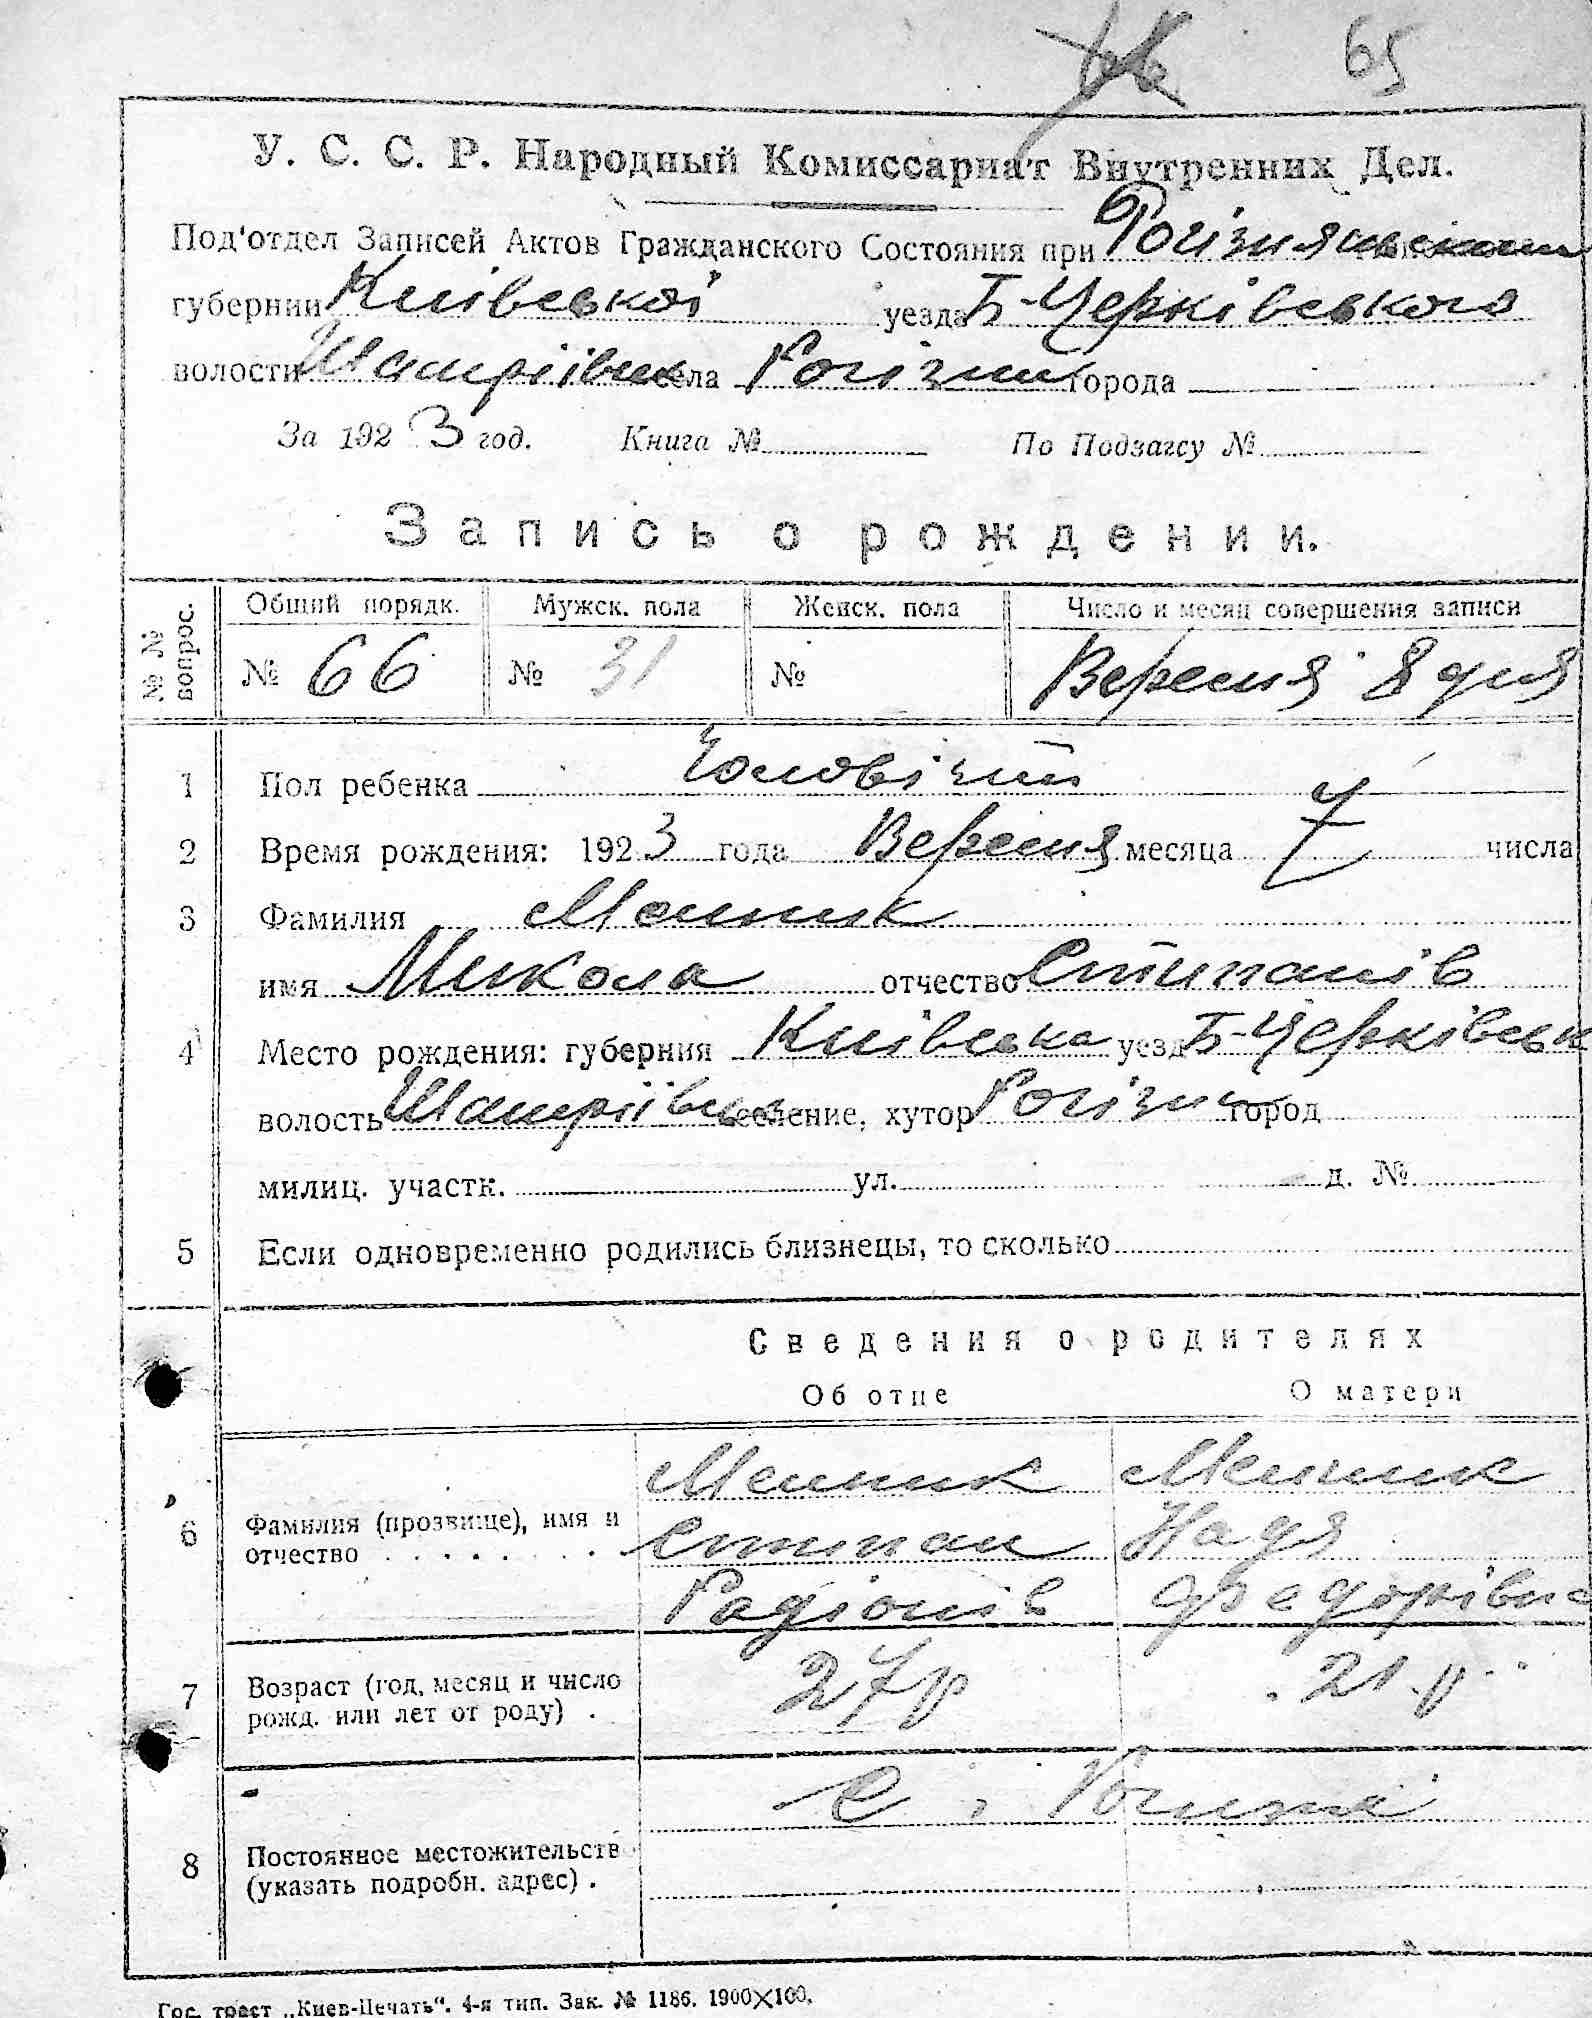 65
У. С. С. Р. Народный Комиссариат Внутренних Дел.
Под'отдел Записей Актов Гражданского Состояния при
губернии Київської уезда Б-Черківського
волости села города
За 1923 год. Книга № По Подзагсу №
Запись о рождении.
№ № вопрос. Общий порядк. Мужск. пола Женск. пола Число и месяц совершения записи
№ 66 № 31 № Вересня 8 дня
1 Пол ребенка Чоловічий
2 Время рождения: 1923 года Вересня месяца 7 числа
3 Фамилия Мелник
имя Микола отчество Степанів
4 Место рождения: губерния Київська уезд Б-Черківськ
волость селение, хутор город
милиц. участк. ул. д. №
5 Если одновременно родились близнецы, то сколько
Сведения о родителях
Об отце О матери
Мелник Мелник
6 Фамилия (прозвище), имя и отчество Степан Надя
Радіонів Федорівна
7 Возраст (год, месяц и число рожд. или лет от роду) . 27 р 21 р
8 Постоянное местожительств (указать подробн. адрес) .
Гос. трест „Киев-Печать“. 4-я тип. Зак. № 1186. 1900×100.